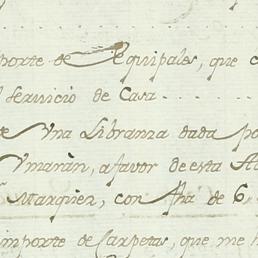 porte de Equipales, que c
l servicio de Casa . . . . .
e Una Libranza dada po
Ymaràn, a favor de esta
Marquez, con fha de 6
importe de Carpetas, que me h